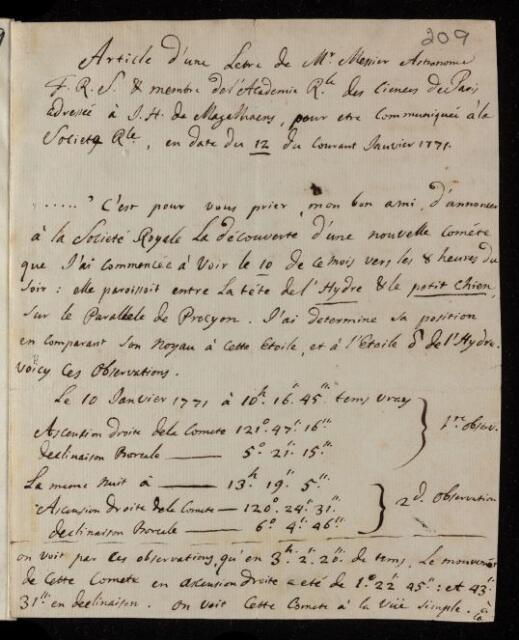 209
Article d'une Letre de Mr. Messier Astronome
F. R. S. & membre de l'Academie Rle. des Ciences de Paris
adressée à J. H. de Magalhaens, pour etre Communiquée à la
Societe Rle., en date du 12 du Courant Janvier 1771.
....." C'est pour vous prier, mon bon ami, d'annoncer
à la Societé Royale La découverte d'une nouvelle Cométe
que J'ai commencée à voir le 10 de ce mois vers les 8 heures du
soir : elle paroissoit entre La tête de l'Hydre & le petit Chien,
sur le Parallele de Procyon. J'ai determiné sa position
en comparant son Noyau à Cette Etoile, et à l'Etoile δ de l'Hydre.
voicy Ces Observations.
Le 10 Janvier 1771 à 10h. 16'. 45". tems vray
Ascension droite de la Comete 121°. 47'. 16".
declinaison Boreale — 5°. 21'. 15".
1re. Observ.
La meme nuit à — 13h. 19'. 5".
Ascension droite de la Comete — 120°. 24'. 31".
declinaison Boreale — 6°. 4'. 46".
2d. Observation
on voit par Ces observations, qu'en 3h. 2'. 20". de tems, Le mouvement
de Cette Comete en ascension droite a eté de 1°. 22'. 45". et 43'.
31". en declinaison. on voit Cette Comete à la Vüe simple. à
la